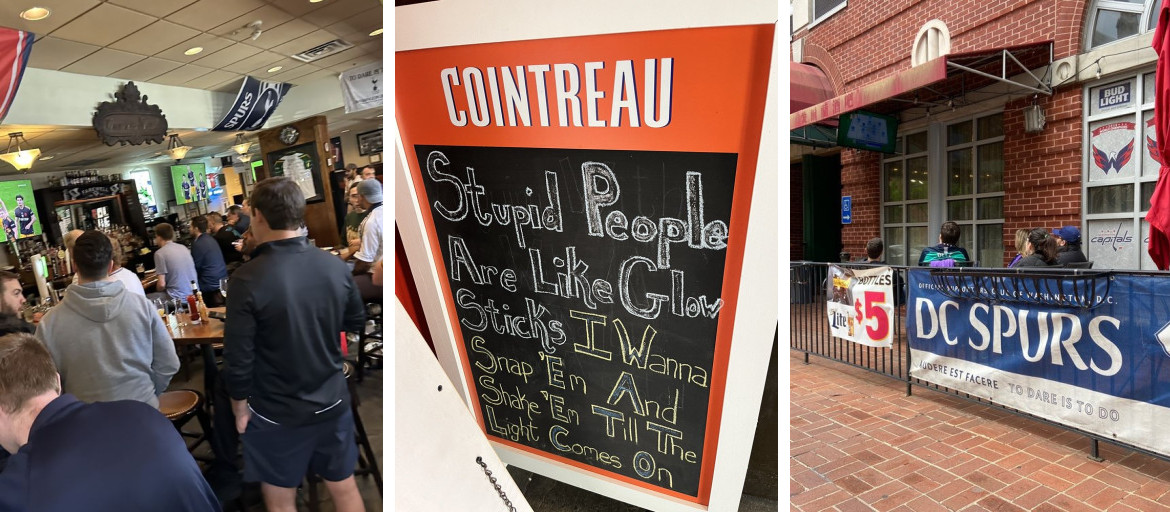 SPURS
TO DARE IS TO
COINTREAU
Stupid People
Are Like Glow
Sticks I Wanna
Snap 'Em And
Shake 'Em Till The
Light Comes On
BUD
LIGHT
capitals
BOTTLES
Lite $5
DC SPURS
AUDERE EST FACERE TO DARE IS TO DO